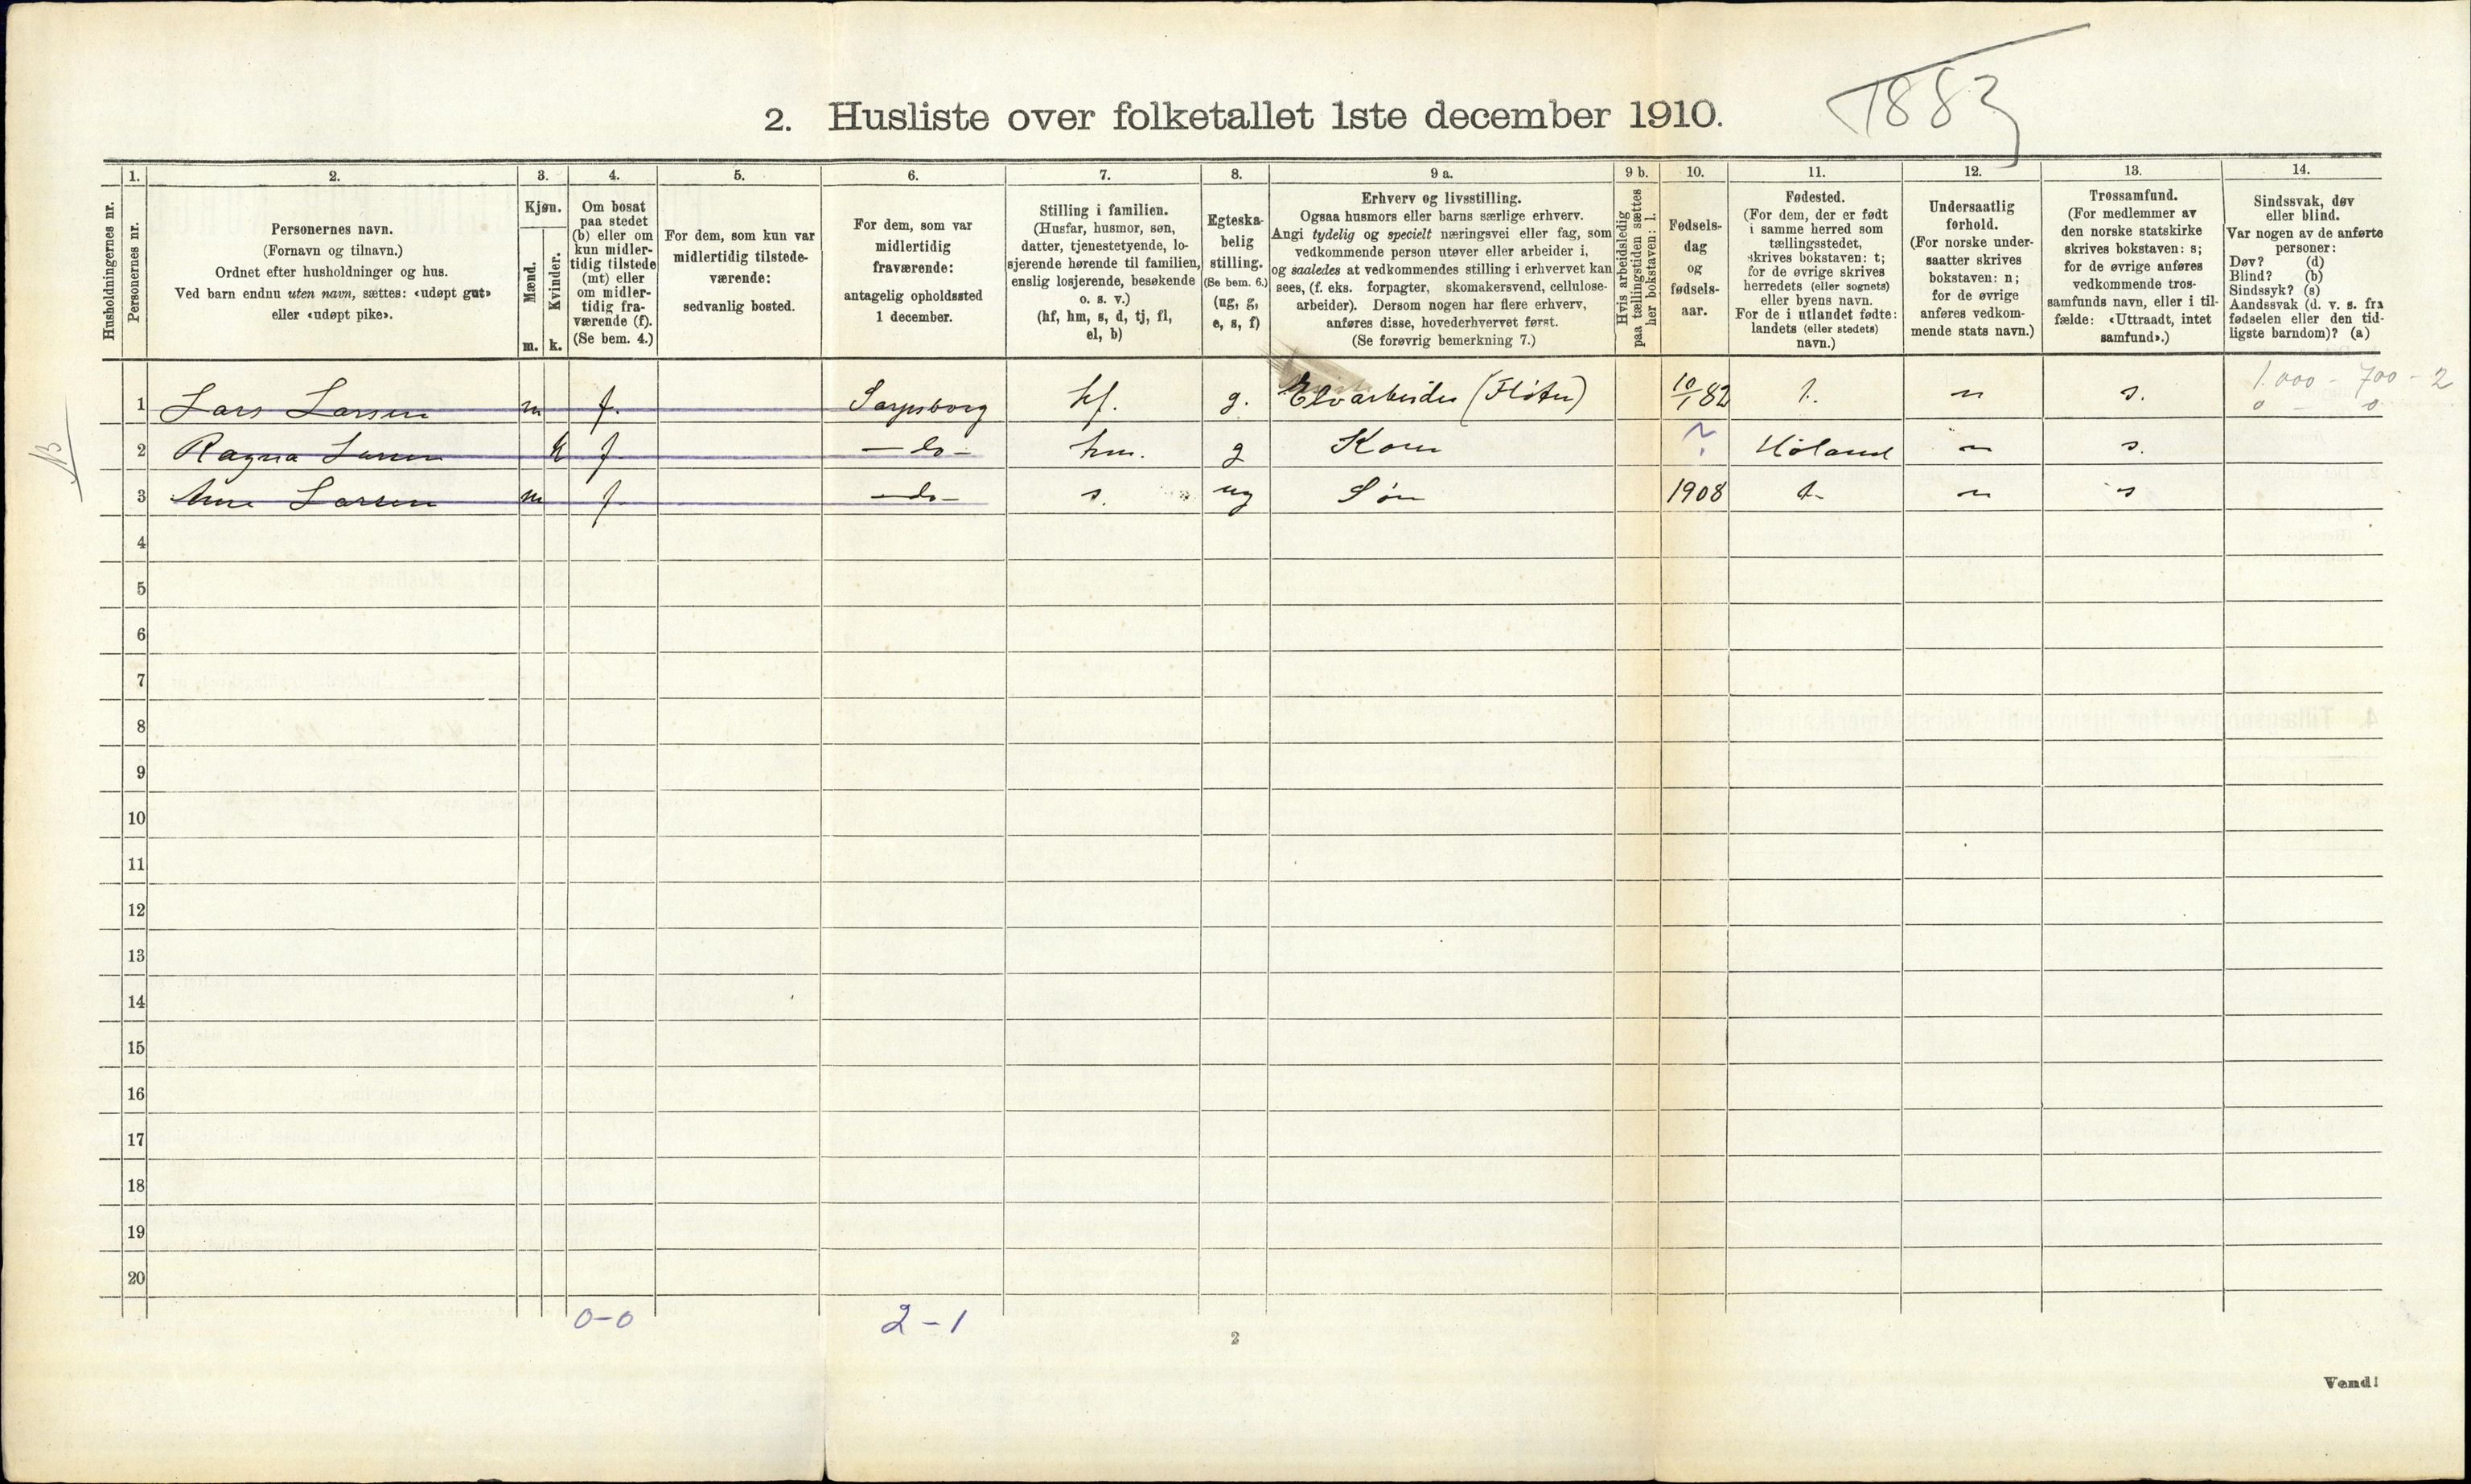 1883
2. Husliste over folketallet 1ste december 1910.
Husholdningernes nr.
1.
Personernes nr.
2.
Personernes navn.
(Fornavn og tilnavn.)
Ordnet efter husholdninger og hus.
Ved barn endnu uten navn, sættes: «udøpt gut»
eller «udøpt pike».
3.
Kjøn.
Mænd.
Kvinder.
m. k.
4.
Om bosat
paa stedet
(b) eller om
kun midler-
tidig tilstede
(mt) eller
om midler-
tidig fra-
værende (f).
(Se bem. 4.)
5.
For dem, som kun var
midlertidig tilstede-
værende:
sedvanlig bosted.
6.
For dem, som var
midlertidig
fraværende:
antagelig opholdssted
1 december.
7.
Stilling i familien.
(Husfar, husmor, søn,
datter, tjenestetyende, lo-
sjerende hørende til familien,
enslig losjerende, besøkende
o. s. v.)
(hf, hm, s, d, tj, fl,
el, b)
8.
Egteska-
belig
stilling.
(Se bem. 6.)
(ug, g,
e, s, f)
9 a.
Erhverv og livsstilling.
Ogsaa husmors eller barns særlige erhverv.
Angi tydelig og specielt næringsvei eller fag, som
vedkommende person utøver eller arbeider i,
og saaledes at vedkommendes stilling i erhvervet kan
sees, (f. eks. forpagter, skomakersvend, cellulose-
arbeider). Dersom nogen har flere erhverv,
anføres disse, hovederhvervet først.
(Se forøvrig bemerkning 7.)
9 b.
Hvis arbeidsledig
paa tællingstiden sættes
her bokstaven: l.
10.
Fødsels-
dag
og
fødsels-
aar.
11.
Fødested.
(For dem, der er født
i samme herred som
tællingsstedet,
skrives bokstaven: t;
for de øvrige skrives
herredets (eller sognets)
eller byens navn.
For de i utlandet fødte:
landets (eller stedets)
navn.)
12.
Undersaatlig
forhold.
(For norske under-
saatter skrives
bokstaven: n;
for de øvrige
anføres vedkom-
mende stats navn.)
13.
Trossamfund.
(For medlemmer av
den norske statskirke
skrives bokstaven: s;
for de øvrige anføres
vedkommende tros-
samfunds navn, eller i til-
fælde: «Uttraadt, intet
samfund».)
14.
Sindssvak, døv
eller blind.
Var nogen av de anførte
personer:
Døv? (d)
Blind? (b)
Sindssyk? (s)
Aandssvak (d. v. s. fra
fødselen eller den tid-
ligste barndom)? (a)
1 Lars Larsen m f. Sarpsborg hf. g. Elvarbeider (Fløter) 10/1 82 t. n s. 1.000 - 700 - 2
0 - 0
2 Ragna Larsen k f. - do - hm. g Kone ? Høland n s.
3 Arne Larsen m f. - do - s. ug Søn 1908 t. n s
4
5
6
7
8
9
10
11
12
13
14
15
16
17
18
19
20
0-0 2-1
2
Vend!